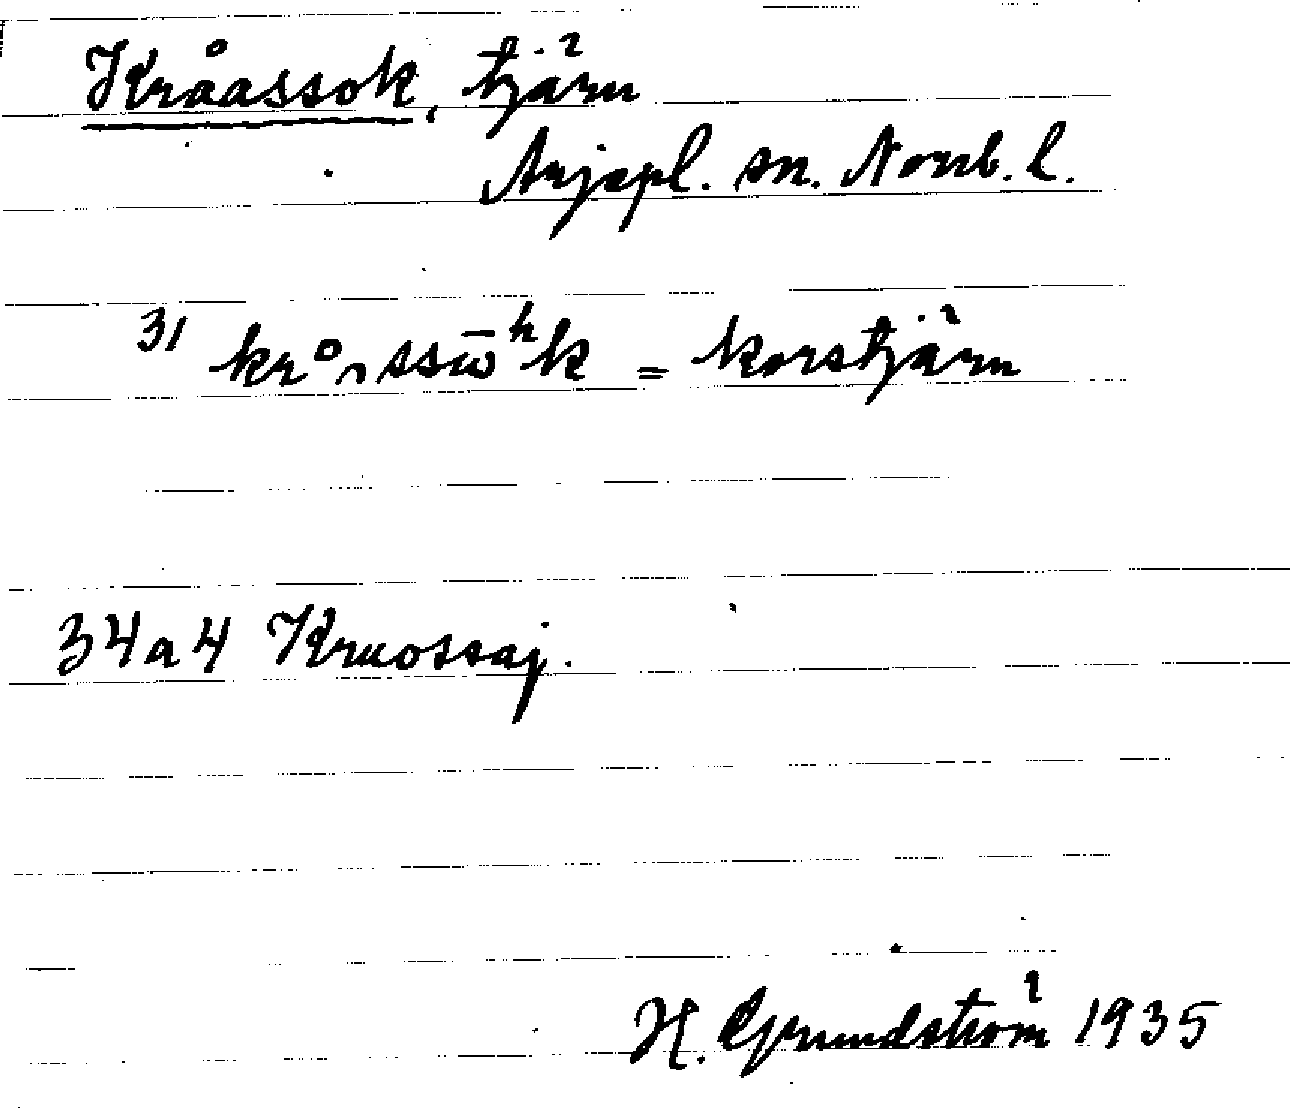 Kråassok, tjärn
Arjepl. sn. Norrb. l.
31 kr°ₙssω̄ʰk = korstjärn
34a4 Kruossaj.
H. Grundström 1935